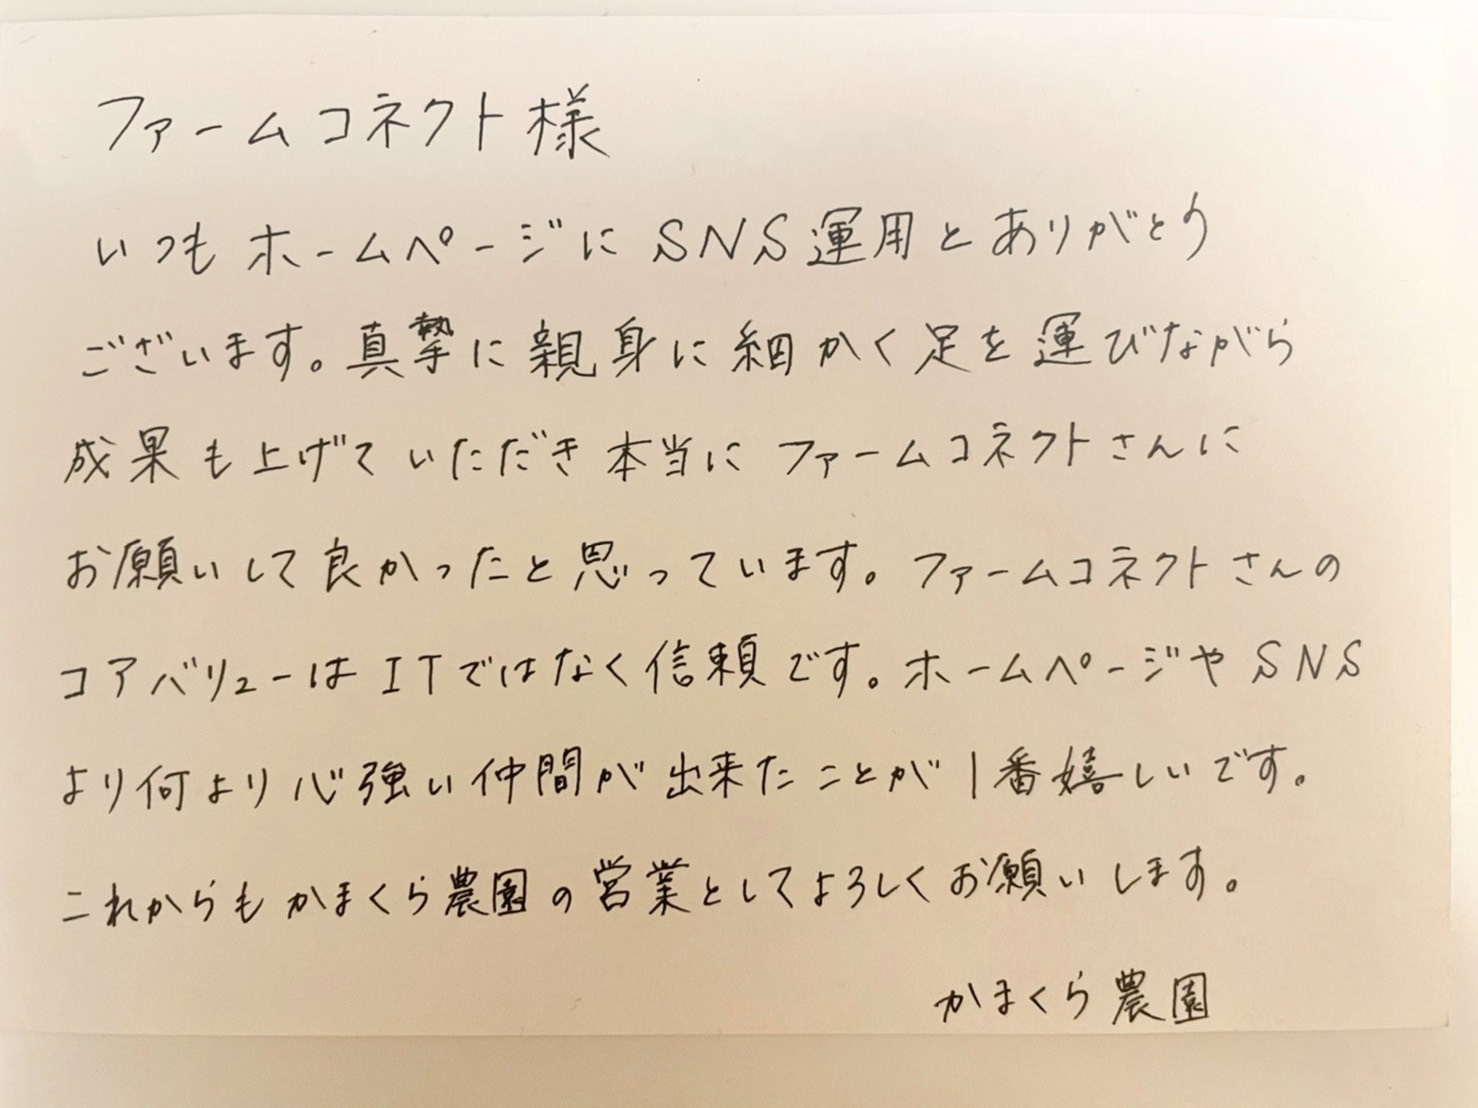 ファームコネクト様
いつもホームページにSNS運用とありがとう
ございます。真摯に親身に細かく足を運びながら
成果も上げていただき本当にファームコネクトさんに
お願いして良かったと思っています。ファームコネクトさんの
コアバリューはITではなく信頼です。ホームページやSNS
より何より心強い仲間が出来たことが1番嬉しいです。
これからもかまくら農園の営業としてよろしくお願いします。
かまくら農園